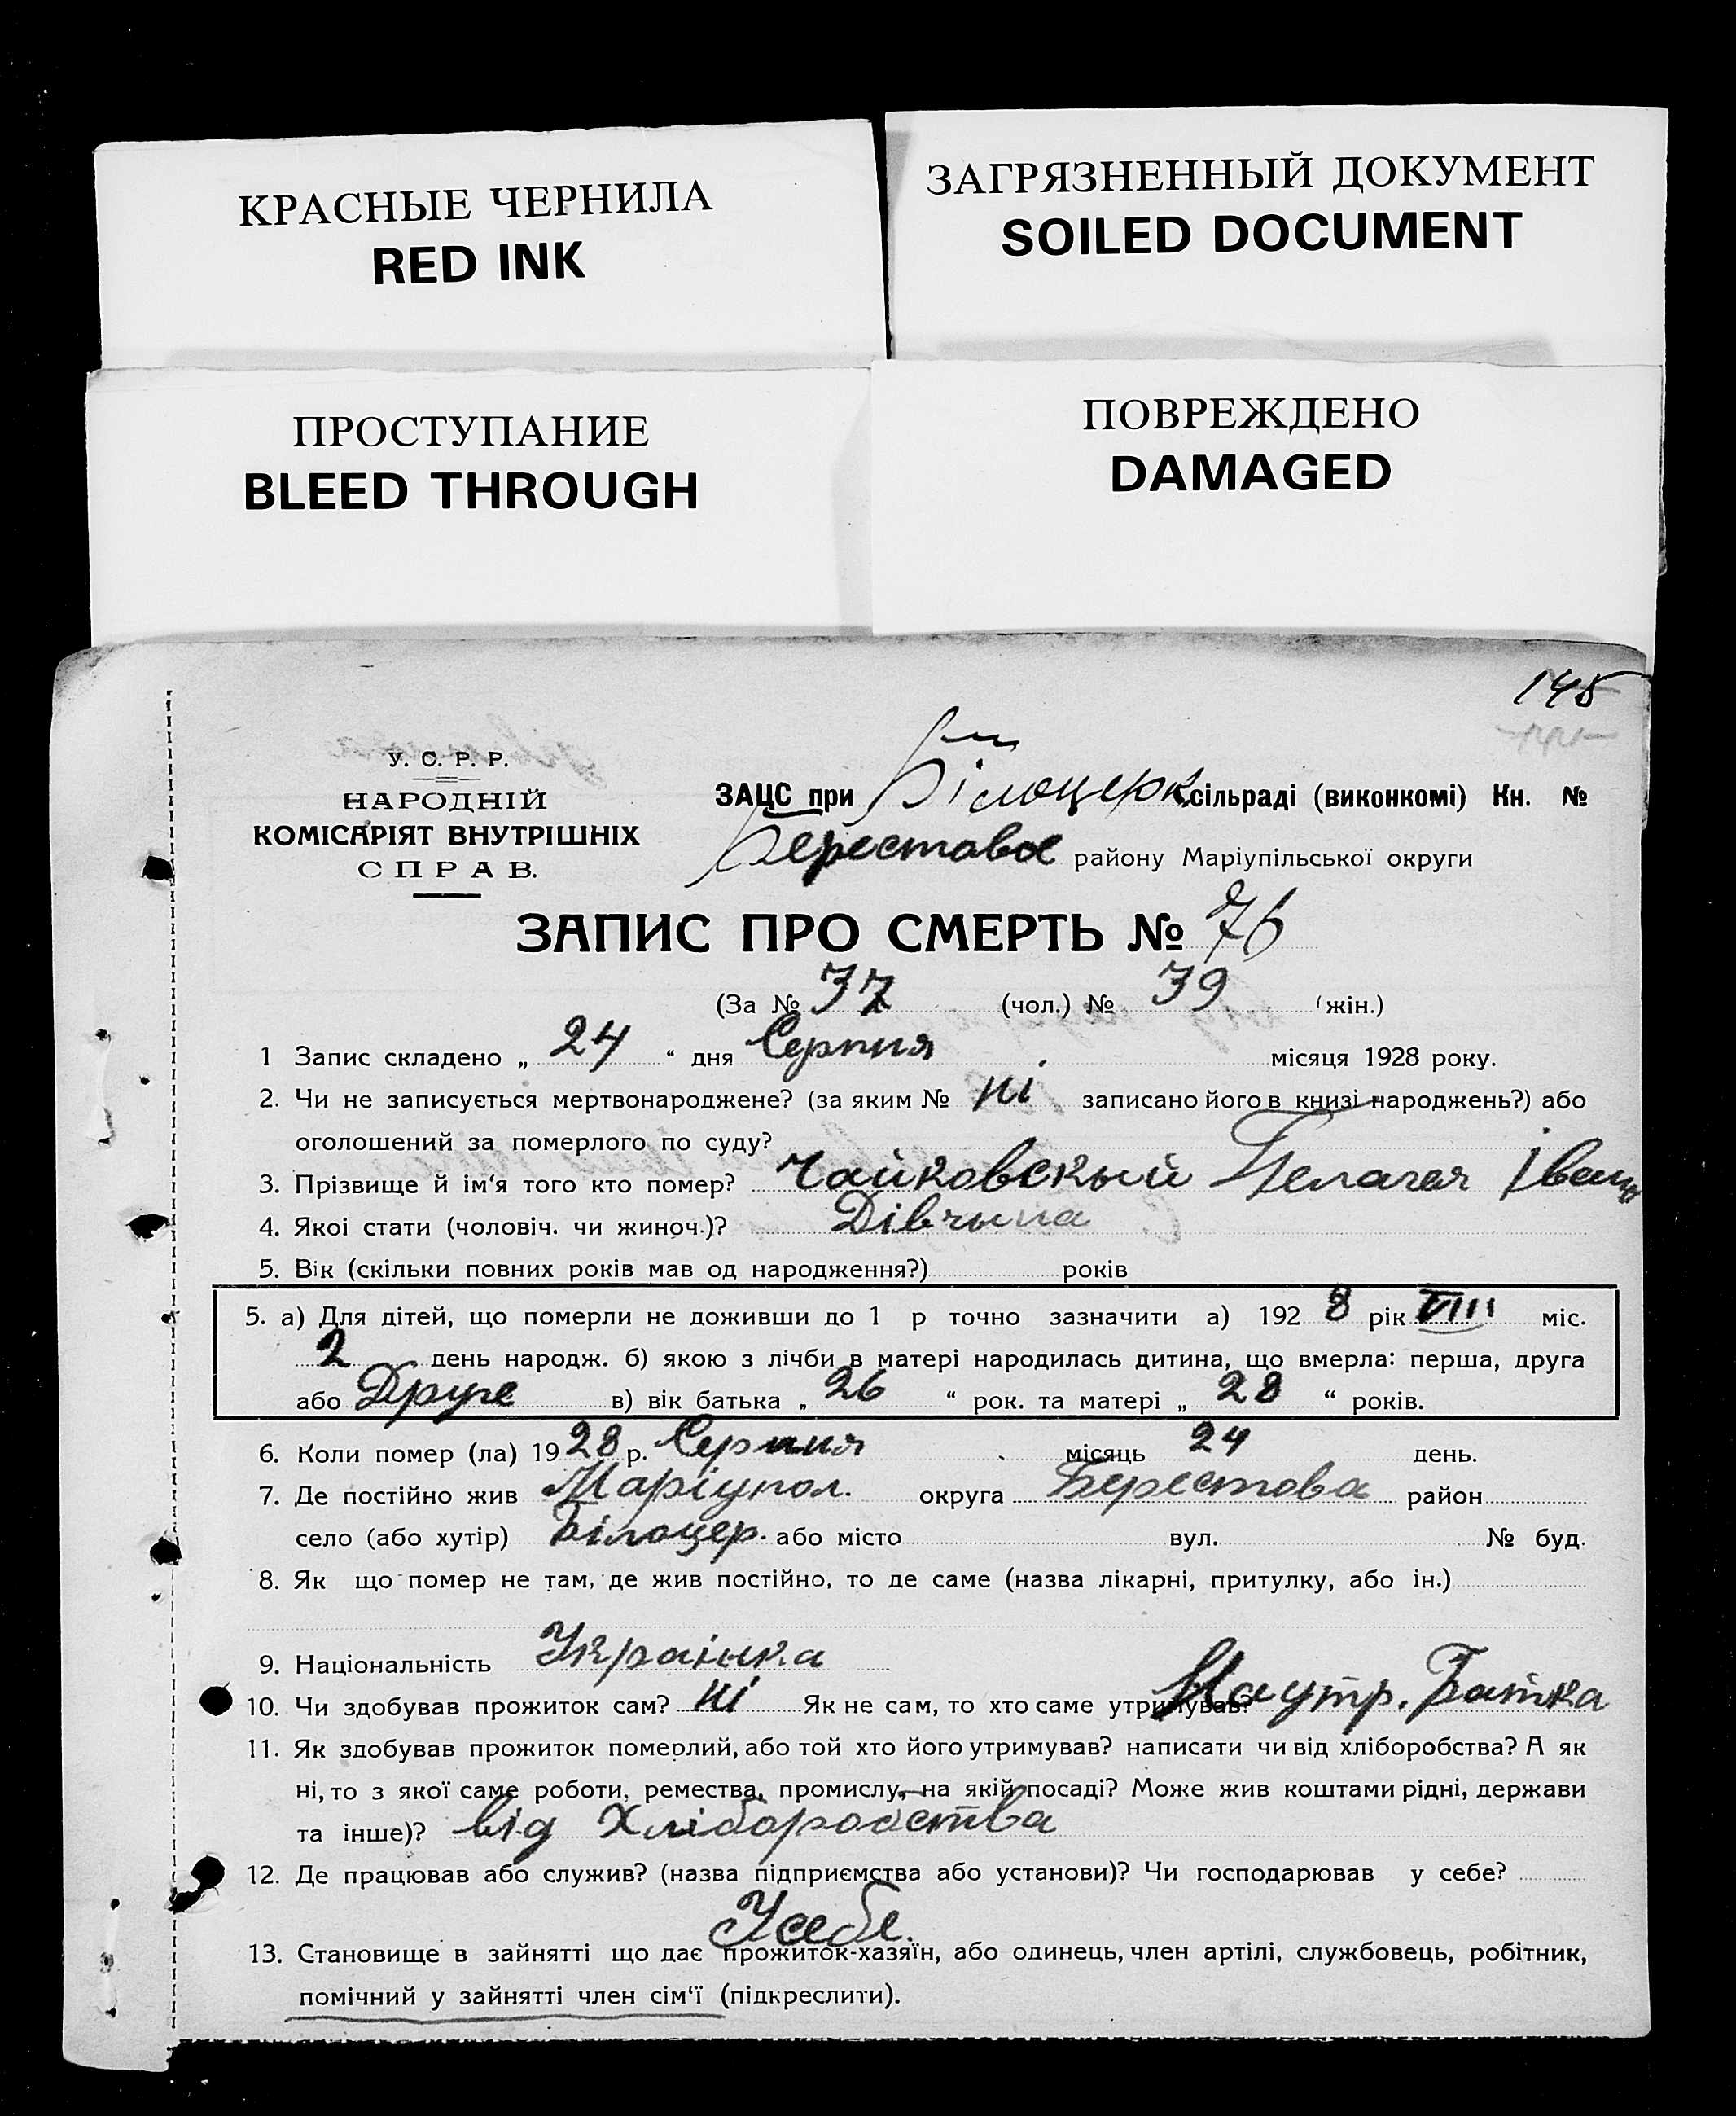 КРАСНЫЕ ЧЕРНИЛА
RED INK
ЗАГРЯЗНЕННЫЙ ДОКУМЕНТ
SOILED DOCUMENT
ПРОСТУПАНИЕ
BLEED THROUGH
ПОВРЕЖДЕНО
DAMAGED
145
У. С. Р. Р.
НАРОДНІЙ
КОМІСАРІЯТ ВНУТРІШНІХ
СПРАВ.
ЗАЦС при Білоцерк. сільраді (виконкомі) Кн. №
Берестовое району Маріупільської округи
ЗАПИС ПРО СМЕРТЬ № 76
(За № 37 (чол.) № 39 (жін.)
1 Запис складено „ 24 “ дня Серпня місяця 1928 року.
2. Чи не записується мертвонароджене? (за яким № ні записано його в книзі народжень?) або
оголошений за померлого по суду?
3. Прізвище й ім‘я того хто помер? Чайковскый Пелагея Іван
4. Якої стати (чоловіч. чи жиноч.)? Дівчына
5. Вік (скільки повних років мав од народження?) років
5. а) Для дітей, що померли не доживши до 1 р точно зазначити а) 192 8 рік VIII міс.
2 день народж. б) якою з лічби в матері народилась дитина, що вмерла: перша, друга
або Друге в) вік батька „ 26 “ рок. та матері „ 28 “ років.
6. Коли помер (ла) 19 28 р. Серпня місяць 24 день.
7. Де постійно жив Маріупол. округа Берестова район
село (або хутір) Білоцер. або місто вул. № буд.
8. Як що помер не там, де жив постійно, то де саме (назва лікарні, притулку, або ін.)
9. Національність Украінка
10. Чи здобував прожиток сам? ні Як не сам, то хто саме утримував? На утр. Батка
11. Як здобував прожиток померлий, або той хто його утримував? написати чи від хліборобства? А як
ні, то з якої саме роботи, ремества, промислу, на якій посаді? Може жив коштами рідні, держави
та інше)? від Хліборобства
12. Де працював або служив? (назва підприємства або установи)? Чи господарював у себе?
У себе.
13. Становище в зайнятті що дає прожиток-хазяїн, або одинець, член артілі, службовець, робітник,
помічний у зайнятті член сім‘ї (підкреслити).